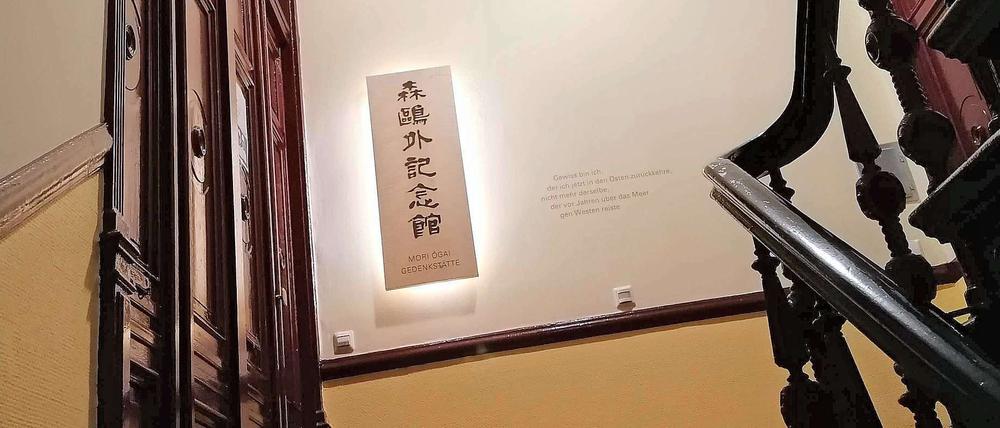 森鷗外記念館
MORI ÔGAI
GEDENKSTÄTTE
Gewiss bin ich,
der ich jetzt in den Osten zurückkehre,
nicht mehr derselbe,
der vor Jahren über das Meer
gen Westen reiste